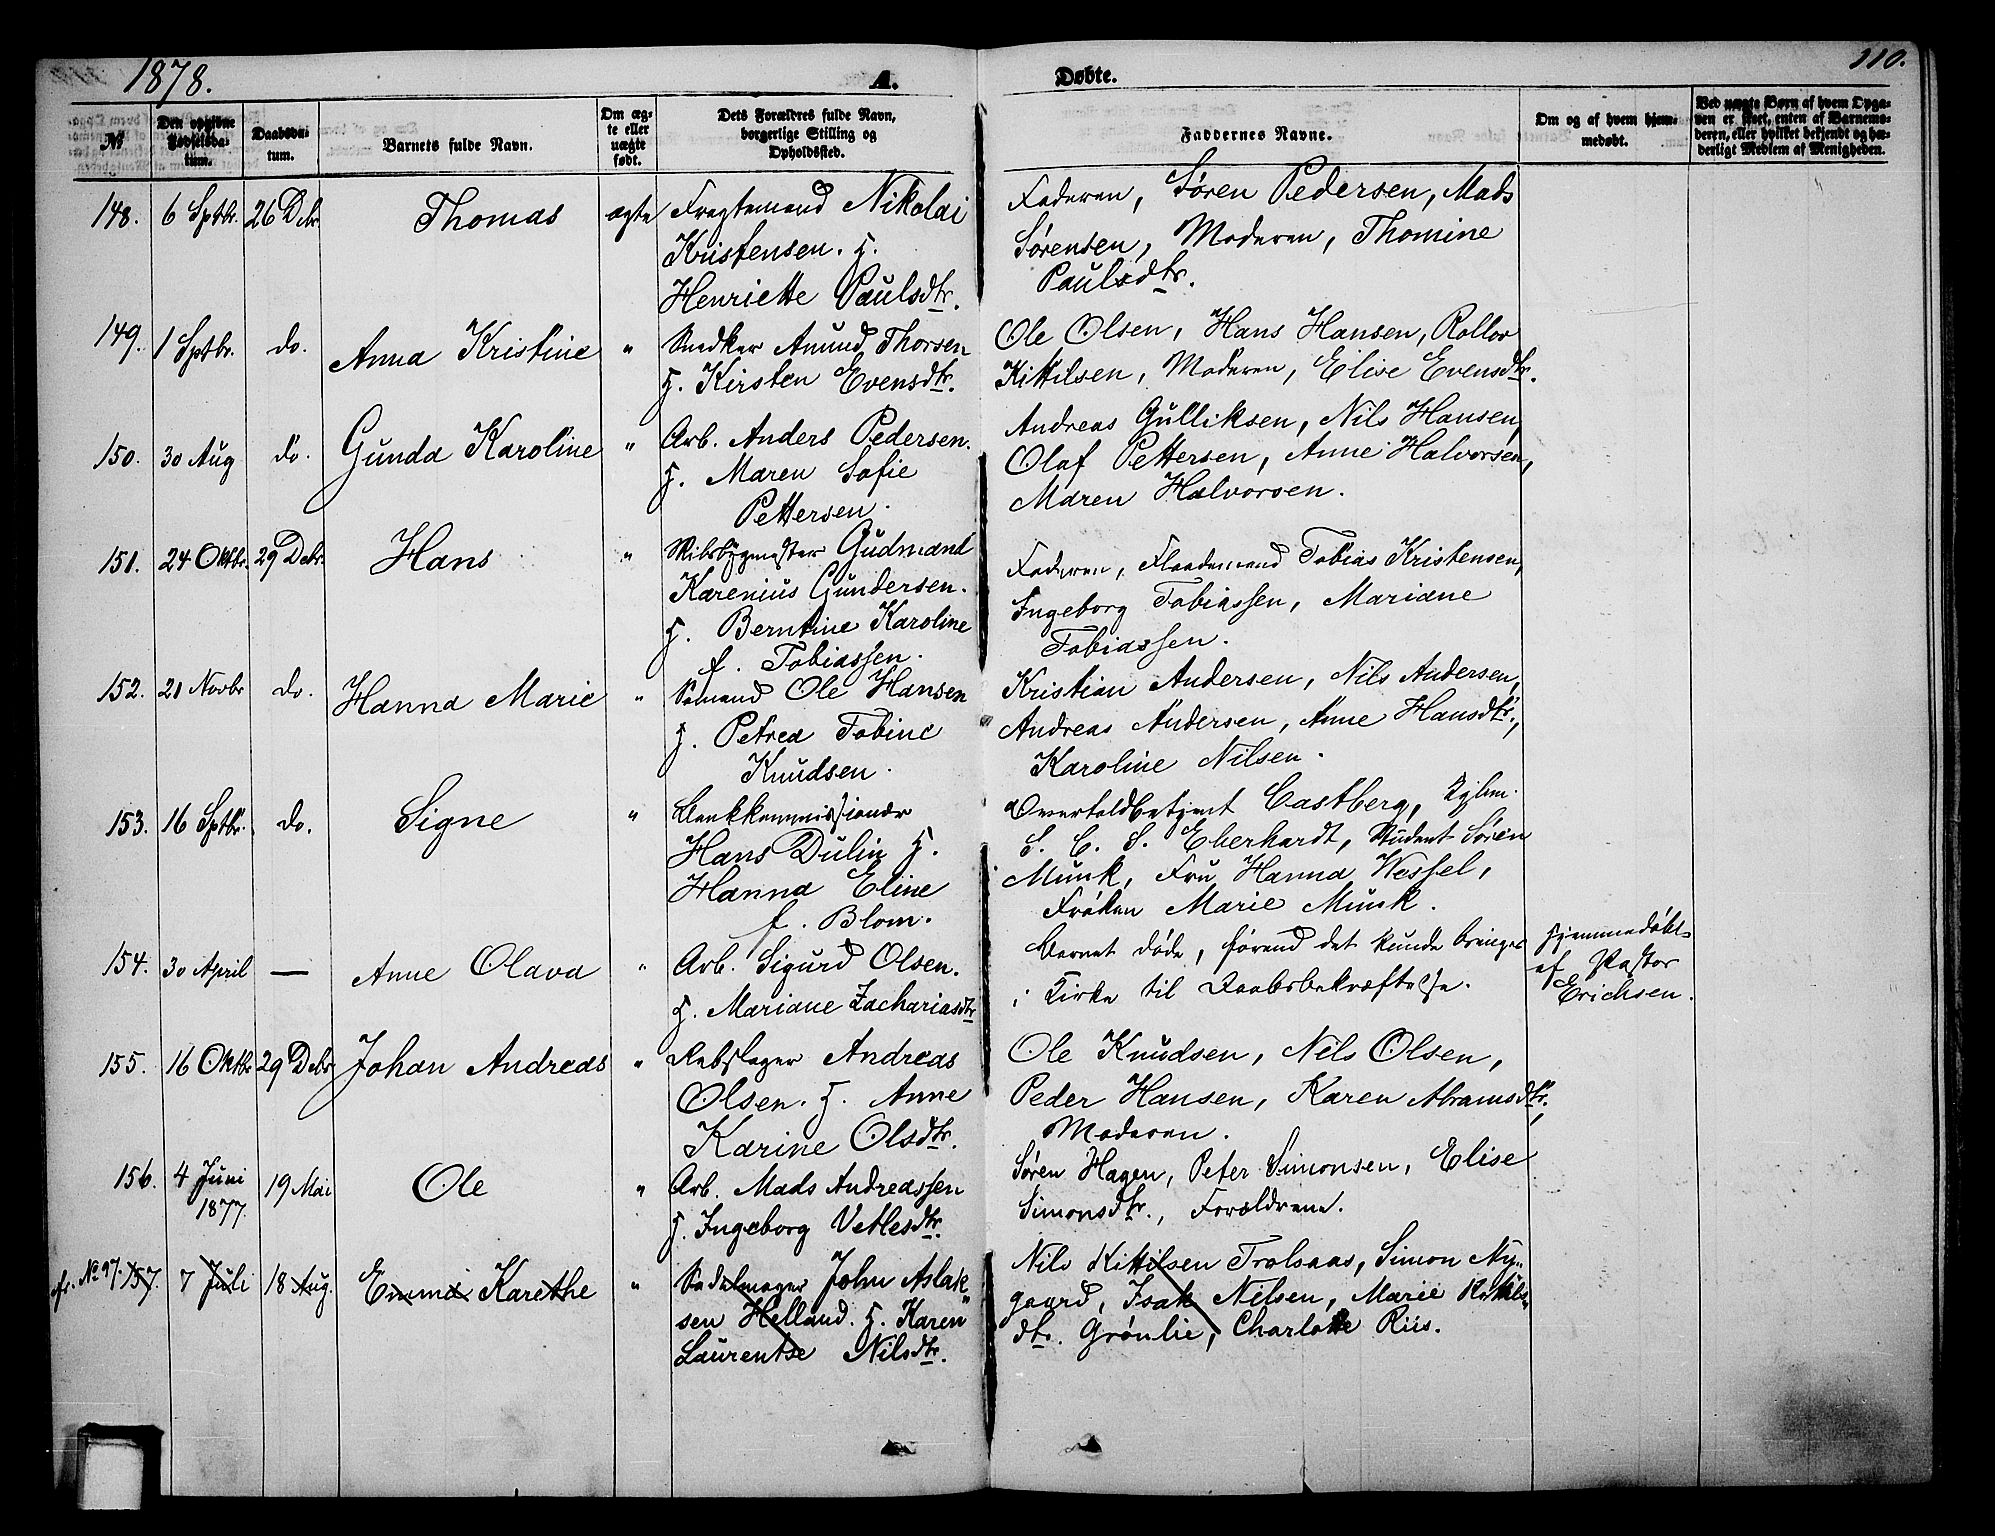 1878.
A.
Døbte.
110.
№
Den opgivne Fødselsdatum.
Daabsdatum.
Barnets fulde Navn.
Om ægte eller uægte født.
Dets Forældres fulde Navn, borgerlige Stilling og Opholdssted.
Faddernes Navne.
Om og af hvem hjemmedøbt.
Ved uægte Børn af hvem Opgaven er skeet, enten af Barnemoderen, eller hvilket bekjendt og hæderligt Medlem af Menigheden.
148. 6 Sptbr. 26 Debr. Thomas ægte Fragtemand Nikolai
Kristensen. H.
Henriette Paulsdtr.
Faderen, Søren Pedersen, Mads
Sørensen, Moderen, Thomine
Paulsdtr.
149. 1 Sptbr. do. Anna Kristine " Snedker Amund Thorsen
H. Kirsten Evensdtr.
Ole Olsen, Hans Hansen, Rollov
Kittilsen, Moderen, Elise Evensdtr.
150. 30 Aug do. Gunda Karoline " Arb. Anders Pedersen.
H. Maren Sofie
Pettersen.
Andreas Gulliksen, Nils Hansen,
Olaf Pettersen, Anne Halvorsen,
Maren Halvorsen.
151. 24 Oktbr. 29 Debr. Hans " Skibsbygmester Gudmand
Karenius Gundersen.
H. Berntine Karoline
f. Tobiassen.
Faderen, Flaademand Tobias Kristensen,
Ingeborg Tobiassen, Mariane
Tobiassen.
152. 21 Novbr do. Hanna Marie " Sømand Ole Hansen
H. Petrea Tobine
Knudsen.
Kristian Andersen, Nils Andersen,
Andreas Andersen, Anne Hansdtr.,
Karoline Nilsen.
153. 16 Sptbr. do. Signe " Bankkommissionær
Hans Dulin H.
Hanna Eline
f. Blom.
Overtoldbetjent Castberg, Kjbm.
S. C. S. Eberhardt, Student Søren
Munk, Fru Hanna Wessel,
Frøken Marie Munk.
154. 30 April — Anne Olava " Arb. Sigurd Olsen.
H. Mariane Zachariasdtr
Barnet døde, førend det kunde bringes
i Kirke til Daabsbekræftelse.
Hjemmedøbt
af Pastor
Erichsen.
155. 16 Oktbr 29 Debr Johan Andreas " Rebslager Andreas
Olsen. H. Anne
Karine Olsdtr.
Ole Knudsen, Nils Olsen,
Peder Hansen, Karen Abramsdtr.,
Moderen.
156. 4 Juni 1877. 19 Mai Ole " Arb. Mads Andreassen
H. Ingeborg Vetlesdtr.
Søren Hagen, Peter Simonsen, Elise
Simonsdtr., Forældrene.
cfr. No 97. 157. 7 Juli 18 Aug. Emma Karethe " Sadelmager John Aslak-
sen Helland. H. Karen
Laurentse Nilsdtr.
Nils Kittilsen Trolsaas, Simon Ny-
gaard, Isak Nilsen, Marie Kittils-
dtr. Grønlie, Charlotte Riis.